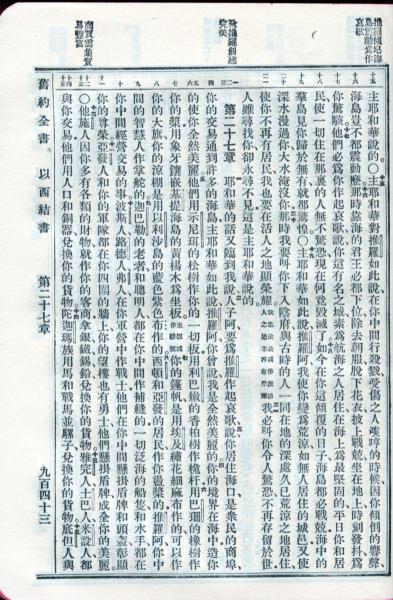 推羅傾圮海島震動當作哀歌
歎推羅創建完美
商賈雲集貿易物富
主耶和華說的○主耶和華對推羅如此說在你中間行殺戮受傷之人唉哼的時候因你傾倒的響聲
海島豈不都震動麼那時靠海的君王必都下位除去朝服脫下花衣披上戰兢坐在地上時刻發抖爲
你驚駭他們必爲你作起哀歌說你這有名之城素爲航海之人居住在海上爲最堅固的平日你和居
民使一切住在那裏的人無不驚恐現在何竟毀滅了如今在你這傾覆的日子海島都必戰兢海中的
羣島見你歸於無有就都驚惶○主耶和華如此說推羅阿我使你變爲荒涼如無人居住的城邑又使
深水漫過你大水淹沒你那時我要叫你下入陰府與古時的人一同在地的深處久已荒涼之地居住
使你不再有居民我也要在活人之地顯榮耀
我必叫你令人驚恐不再存留於世
人雖尋找你卻永尋不見這是主耶和華說的
第二十七章　耶和華的話又臨到我說人子阿要爲推羅作起哀歌說你居住海口是衆民的商埠
你的交易通到許多的海島主耶和華如此說推羅阿你會說我是全然美麗的你的境界在海中造你
的使你全然美麗他們用示尼珥的松樹作你的一切板用利巴嫩的香柏樹作桅杆用巴珊的橡樹作
你的槳用象牙鑲嵌基提海島的黃楊木爲坐板
你的篷帆是用埃及繡花細麻布作的可以作
你的大旗你的涼棚是用以利沙島的藍色紫色布作的西頓和亞發的居民作你盪槳的推羅阿你中
間的智慧人作掌舵的迦巴勒的老者和聰明人都在你中間作補縫的一切泛海的船隻和水手都在
你中間經營交易的事波斯人路德人弗人在你軍營中作戰士他們在你中間懸掛盾牌和頭盔彰顯
你的尊榮亞發人和你的軍隊都在你四圍的牆上你的望樓也有勇士他們懸掛盾牌成全你的美麗
○他施人因你多有各類的財物就作你的客商拿銀鐵錫鉛兌換你的貨物雅完人土巴人米設人都
與你交易他們用人口和銅器兌換你的貨物陀迦瑪族用馬和戰馬並騾子兌換你的貨物底但人與
舊約全書　以西結書　第二十七章　九百四十三